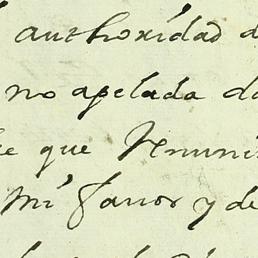 authoridad d
no apelada da
e que Renunci
mi favor y de